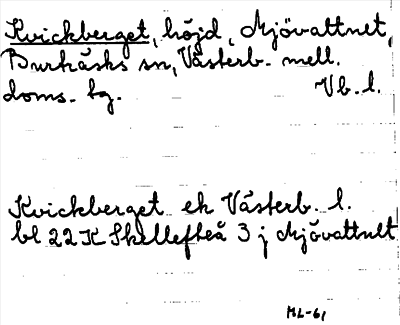 Kvickberget, höjd, Mjövattnet,
Burträsks sn, Västerb. mell.
doms. tg. Vb. l.
Kvickberget ek Västerb. l.
bl 22K Skellefteå 3 j Mjövattnet
ML-61